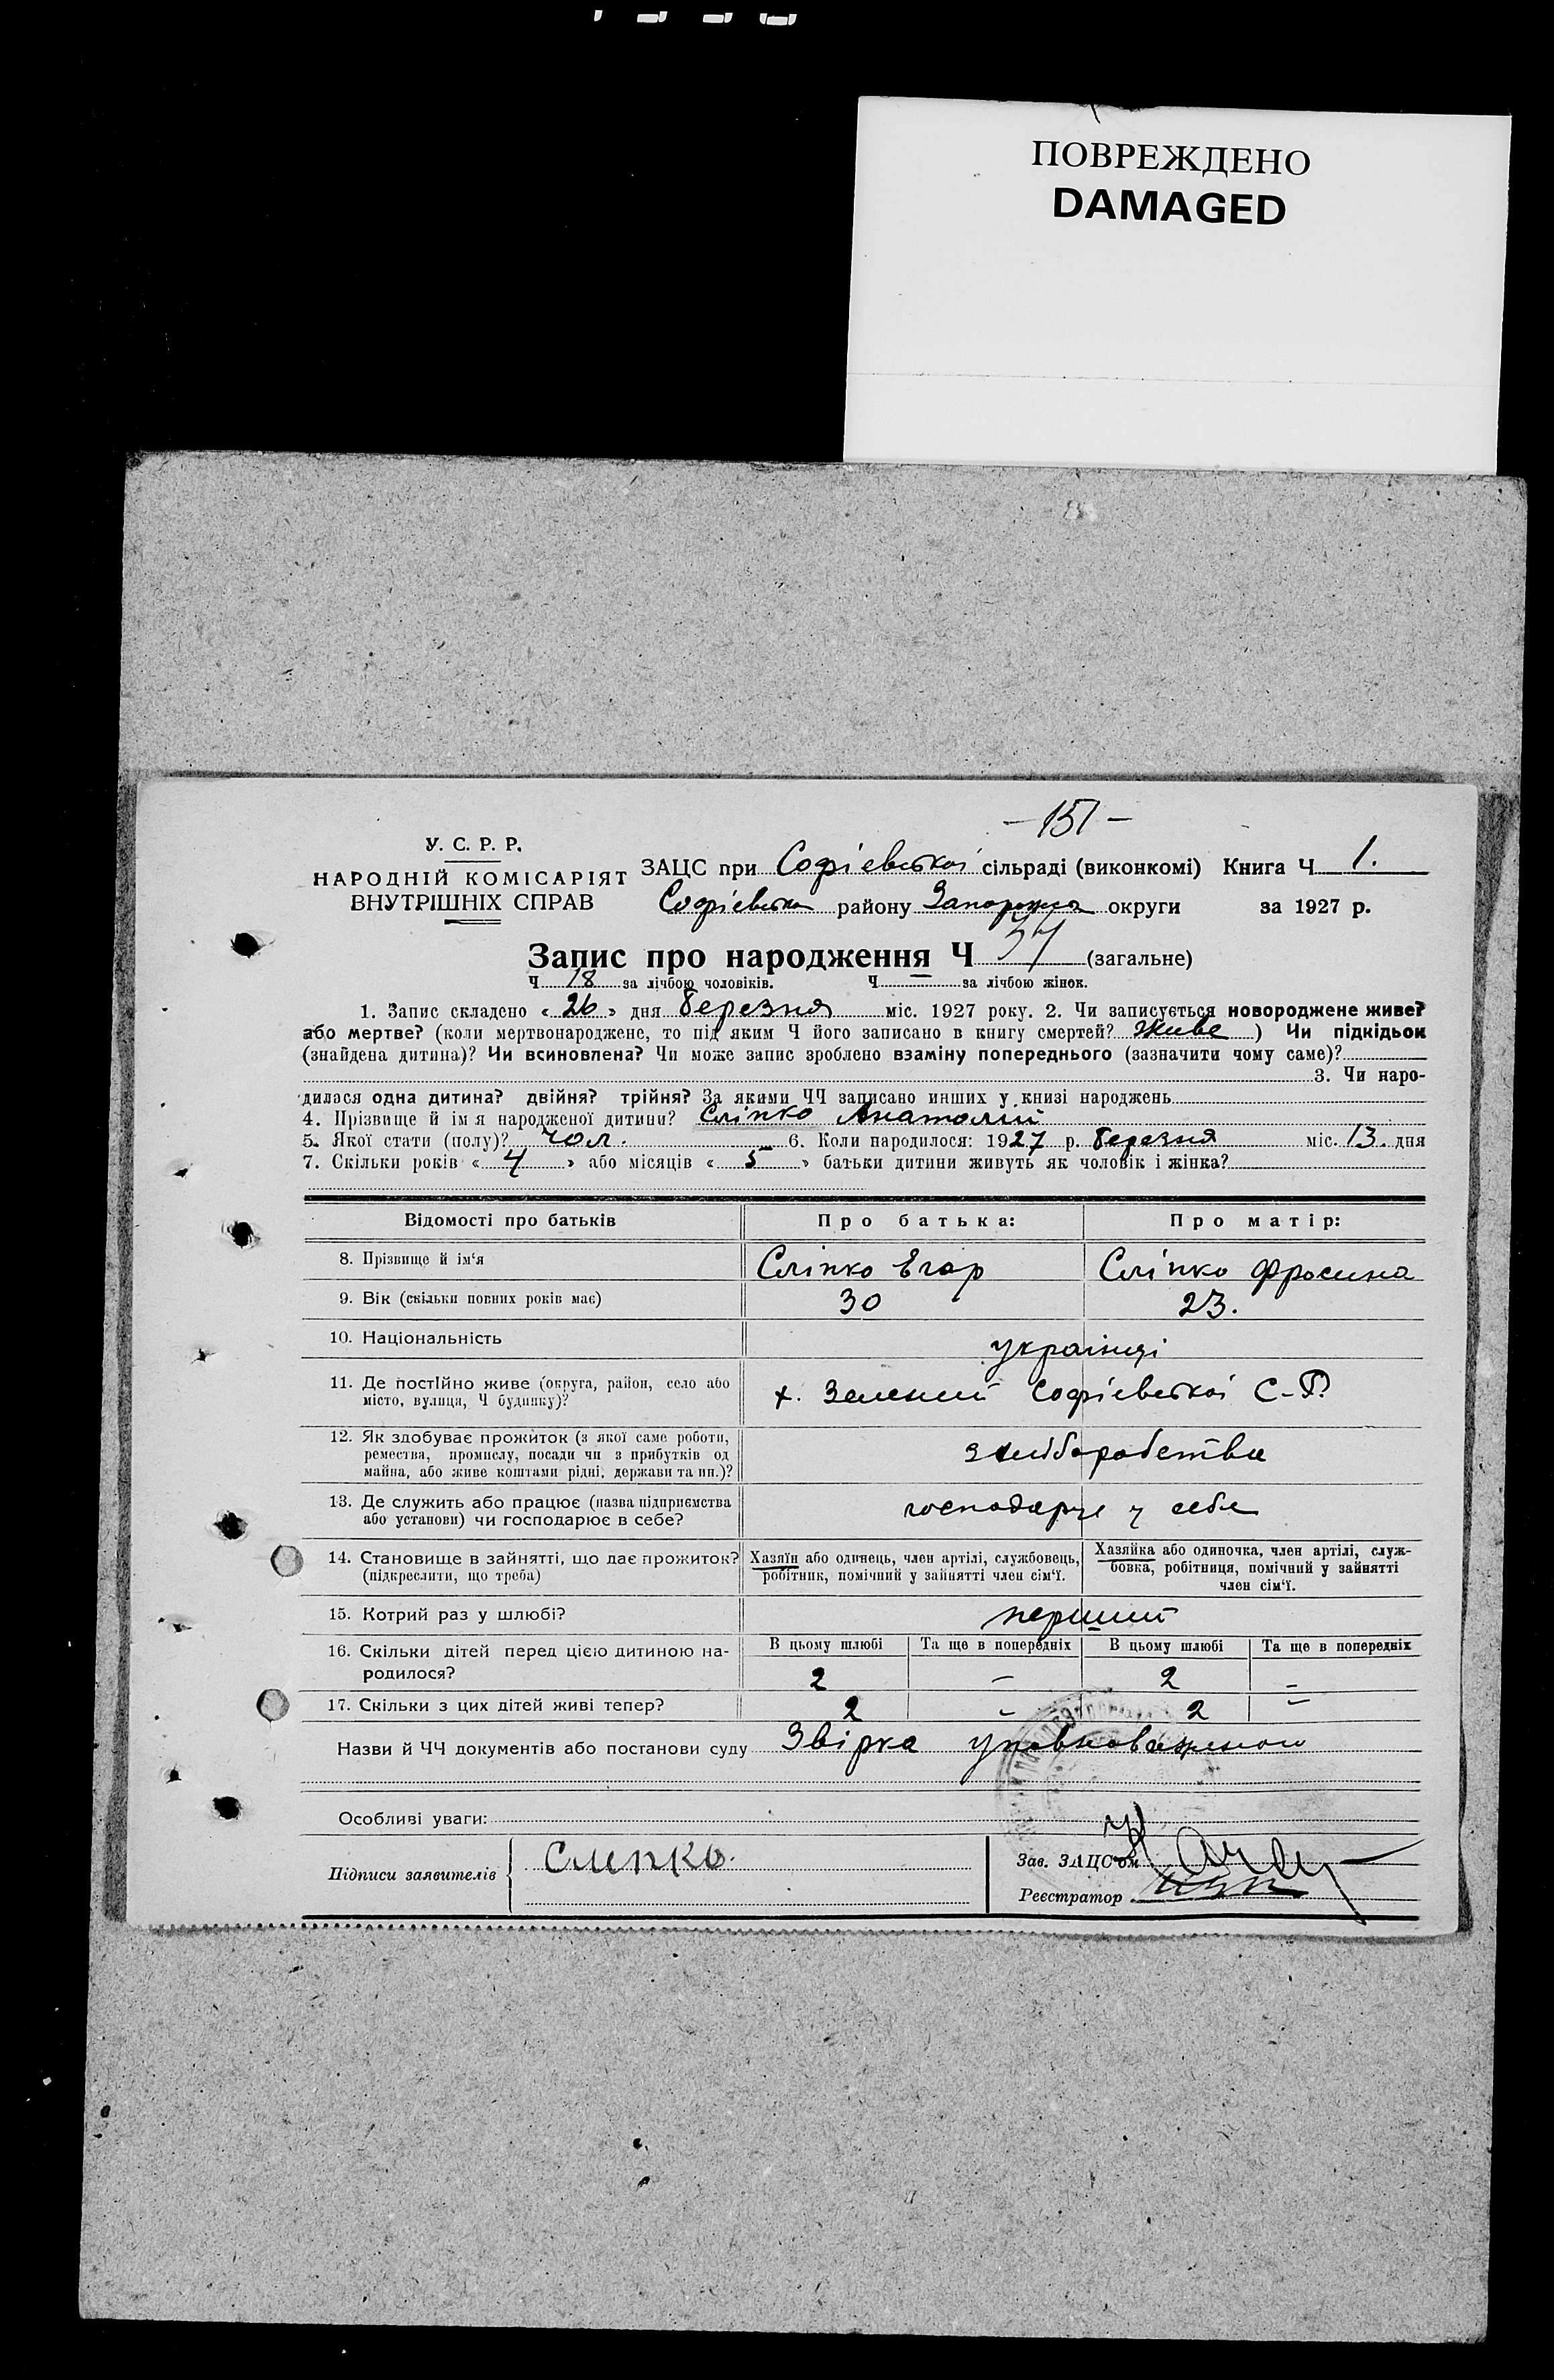 ПОВРЕЖДЕНО
DAMAGED
- 151 -
У. С. Р. Р.
НАРОДНІЙ КОМІСАРІЯТ
ВНУТРІШНІХ СПРАВ
ЗАЦС при Софіевської сільраді (виконкомі) Книга Ч 1.
Софіевськ району Запорожжа округи за 1927 р.
Запис про народження Ч 37 (загальне)
Ч 18 за лічбою чоловіків. Ч за лічбою жінок.
1. Запис складено « 26 » дня березня міс. 1927 року. 2. Чи записується новороджене живе?
або мертве? (коли мертвонароджене, то під яким Ч його записано в книгу смертей? живе ) Чи підкідьок
(знайдена дитина)? Чи всиновлена? Чи може запис зроблено взаміну попереднього (зазначити чому саме)?
3. Чи наро-
дилася одна дитина? двійня? трійня? За якими ЧЧ записано инших у книзі народжень
4. Прізвище й ім я народженої дитини? Сліпко Анатолій
5. Якої стати (полу)? чол. 6. Коли народилося: 1927 р. березня міс. 13. дня
7. Скільки років « 4 » або місяців « 5 » батьки дитини живуть як чоловік і жінка?
Відомості про батьків Про батька: Про матір:
8. Прізвище й ім‘я Сліпко Егор Сліпко Фросина
9. Вік (скільки повних років має) 30 23.
10. Національність українці
11. Де постійно живе (округа, район, село або
місто, вулиця, Ч будинку)? х. Зелений Софіевської С-Р.
12. Як здобуває прожиток (з якої саме роботи,
ремества, промислу, посади чи з прибутків од
майна, або живе коштами рідні, держави та ин.)? з хліборобства
13. Де служить або працює (назва підприємства
або установи) чи господарює в себе? господарує у себе
14. Становище в зайнятті, що дає прожиток?
(підкреслити, що треба)
Хазяїн або одинець, член артілі, службовець,
робітник, помічний у зайнятті член сім‘ї.
Хазяйка або одиночка, член артілі, служ-
бовка, робітниця, помічний у зайнятті
член сім‘ї.
15. Котрий раз у шлюбі? перший
16. Скільки дітей перед цією дитиною на-
родилося?
В цьому шлюбі Та ще в попередніх В цьому шлюбі Та ще в попередніх
2 – 2 –
17. Скільки з цих дітей живі тепер? 2 – 2 –
Назви й ЧЧ документів або постанови суду Звірка уповноваженого
Особливі уваги:
Підписи заявителів Слепко.
Зав. ЗАЦС‘ом
Реєстратор